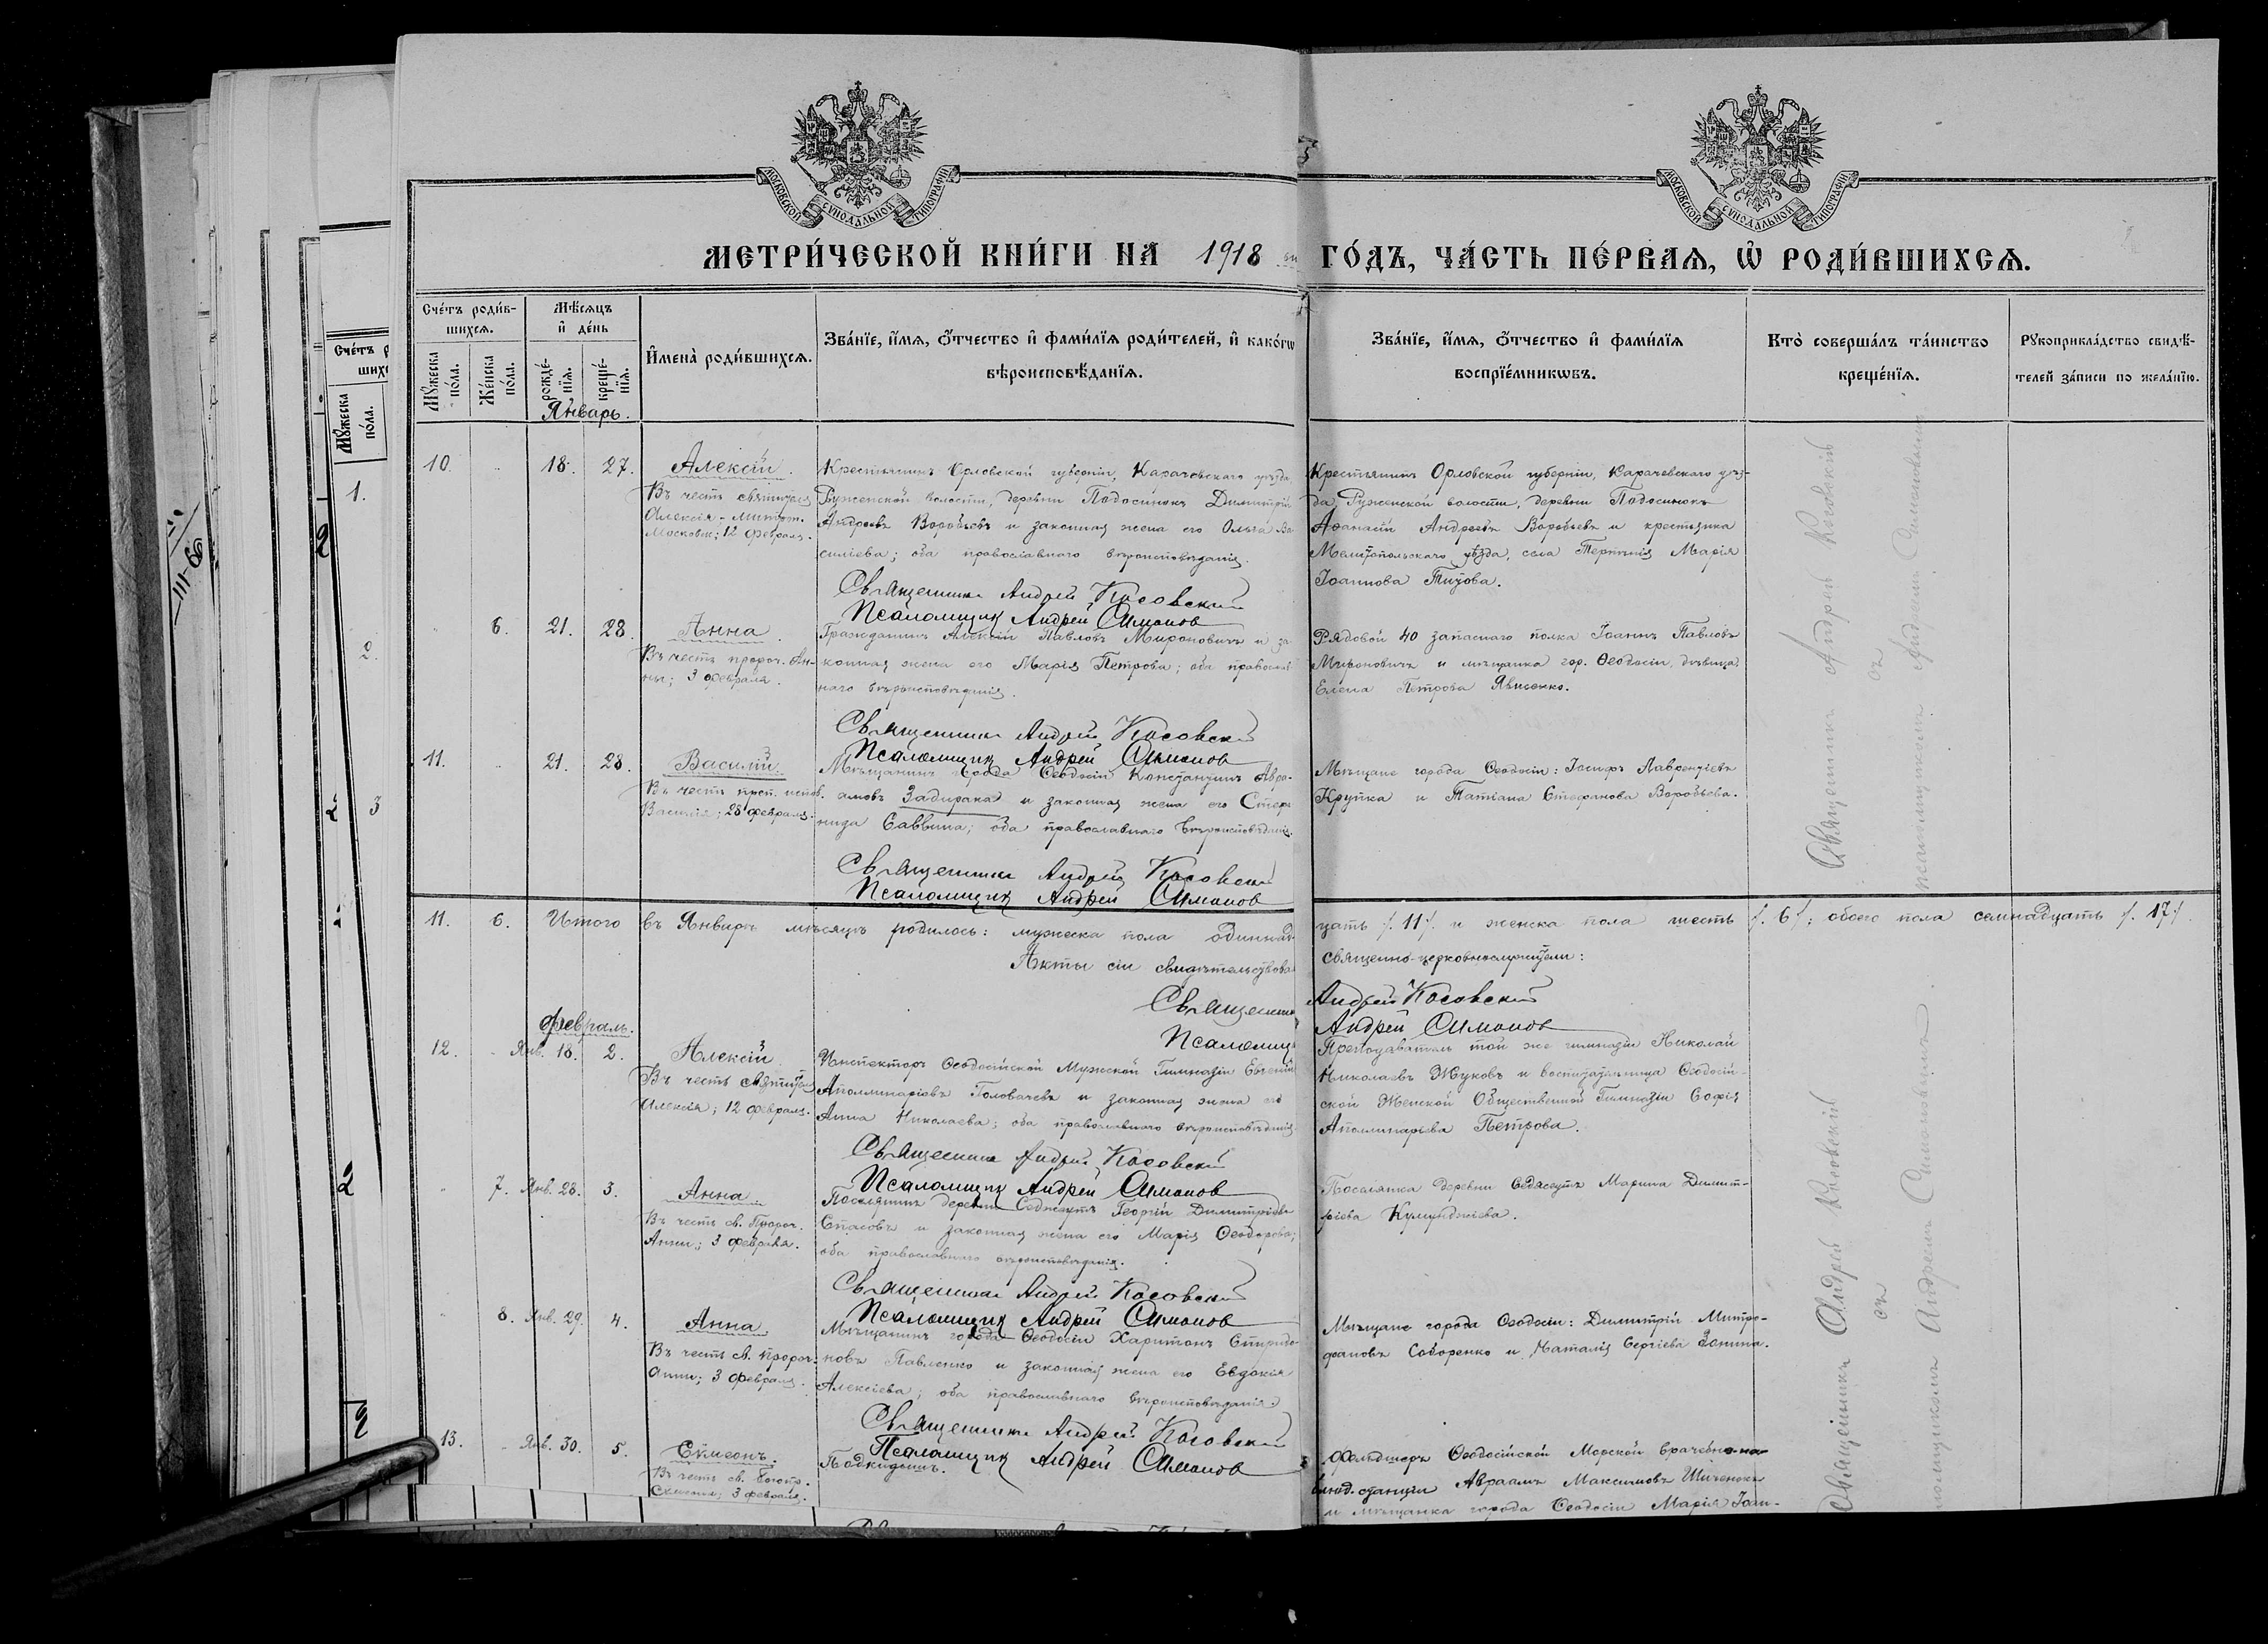 МОСКОВСКОЙ СУНОДАЛЬНОЙ ТИПОГРАФІИ
МОСКОВСКОЙ СУНОДАЛЬНОЙ ТИПОГРАФІИ
МЕТРИ́ЧЕСКОЙ КНИ́ГИ НА 1918 ГО́ДЪ, ЧА́СТЬ ПЕ́РВАѦ, Ѡ҆ РОДИ́ВШИХСѦ.
Сче́тъ роди́в-
шихсѧ.
Мꙋ́жеска
по́ла.
Же́нска
по́ла.
Мѣ́сѧцъ
и҆ де́нь
рожде́-
нїѧ.
креще́-
нїѧ.
И҆мена̀ роди́вшихсѧ.
Зва́нїе, и҆́мѧ, ѻ҆́тчество и҆ фами́лїѧ роди́телей, и҆ како́гѡ
вѣроисповѣ́данїѧ.
Зва́нїе, и҆́мѧ, ѻ҆́тчество и҆ фами́лїѧ
воспрїе́мникѡвъ.
Кто̀ соверша́лъ та́инство
креще́нїѧ.
Рꙋкоприкла́дство свидѣ́-
телей за́писи по жела́нїю.
Январь.
10. 18. 27. Алексій.
Въ честь святителя
Алексія, митроп.
Московск; 12 февраля.
Крестьянинъ Орловской губерніи, Карачевскаго уѣзда,
Руженской волости, деревни Подосинокъ Димитрій
Андреевъ Воробьевъ и законная жена его Ольга Ва
силіева; оба православнаго вѣроисповѣданія.
Священникъ Андрей Косовский
Псаломщик Андрей Симонов
Крестьянинъ Орловской губерніи, Карачевскаго уѣз-
да, Руженской волости, деревни Подосинокъ
Аѳанасій Андреевъ Воробьевъ и крестьянка
Мелитопольскаго уѣзда, села Терпѣнія Марія
Іоаннова Титова.
6. 21. 28. Анна.
Въ честь пророч. Ан-
ны; 3 февраля.
Гражданинъ Алексій Павловъ Мироновичъ и за
конная жена его Марія Петрова; оба православ
наго вѣроисповѣданія.
Священникъ Андрей Косовский
Псаломщик Андрей Симонов
Рядовой 40 запаснаго полка Іоаннъ Павловъ
Мироновичъ и мѣщанка гор. Ѳеодосіи, дѣвица
Елена Петрова Явисенко.
11. 21. 28. Василій.
Въ честь преп. испов.
Василія; 28 февраля.
Мѣщанинъ города Ѳеодосіи Константинъ Авра-
амовъ Задирака и законная жена его Степа
нида Саввина; оба православнаго вѣроисповѣданія.
Священникъ Андрей Косовский
Псаломщик Андрей Симонов
Мѣщане города Ѳеодосіи: Іосифъ Лаврентіевъ
Крупка и Татіана Стефанова Воробьева.
11. 6. Итого въ Январѣ мѣсяцѣ родилось: мужеска пола одиннад
цать /. 11 /. и женска пола шесть /. 6 /; обоего пола семнадцать /. 17 /.
Акты сіи свидѣтельствова
священно-церковнослужители:
Священник Андрей Косовский
Псаломщ Андрей Симонов
Февраль.
12. Янв. 18. 2. Алексій
Въ честь святителя
Алексія; 12 февраля.
Инспекторъ Ѳеодосійской Мужской Гимназіи Евгеній
Аполлинаріевъ Головачевъ и законная жена его
Анна Николаева; оба православнаго вѣроисповѣданія
Священникъ Андрей Косовский
Псаломщик Андрей Симонов
Преподаватель той же гимназіи Николай
Николаевъ Жуковъ и воспитательница Ѳеодосій-
ской Женской Общественной Гимназіи Софія
Аполлинарьева Петрова.
7. Янв. 28. 3. Анна.
Въ честь св. Пророч.
Анны; 3 февраля.
Поселянинъ деревни Седжеутъ Георгій Димитріевъ
Спасовъ и законная жена его Марія Ѳеодорова;
оба православнаго вѣроисповѣданія.
Священникъ Андрей Косовский
Псаломщик Андрей Симонов
Поселянка деревни Седжеутъ Марина Димит-
ріева Кумунджіева.
8. Янв. 29. 4. Анна.
Въ честь св. пророч.
Анны; 3 февраля.
Мѣщанинъ города Ѳеодосіи Харитонъ Спиридо
новъ Павленко и законная жена его Евдокія
Алексіева; оба православнаго вѣроисповѣданія.
Священникъ Андрей Косовский
Псаломщик Андрей Симонов
Мѣщане города Ѳеодосіи: Димитрій Митро-
фановъ Сидоренко и Наталія Сергіева Зонина.
13. Янв. 30. 5. Сѵмеонъ.
Въ честь св. Богопр.
Сѵмеона; 3 февраля.
Подкидышъ.
Фельдшеръ Ѳеодосійской Морской врачебно-на-
блюд. станціи Авраамъ Максимовъ Шиченокъ
и мѣщанка города Ѳеодосіи Марія Іоан-
Священникъ Андрей Косовскій
съ
псаломщикомъ Андреемъ Симоновымъ
Священникъ Андрей Косовскій
съ
псаломщикомъ Андреемъ Симоновымъ.
Сче́тъ
Мꙋ́жеска
по́ла.
1.
2.
3